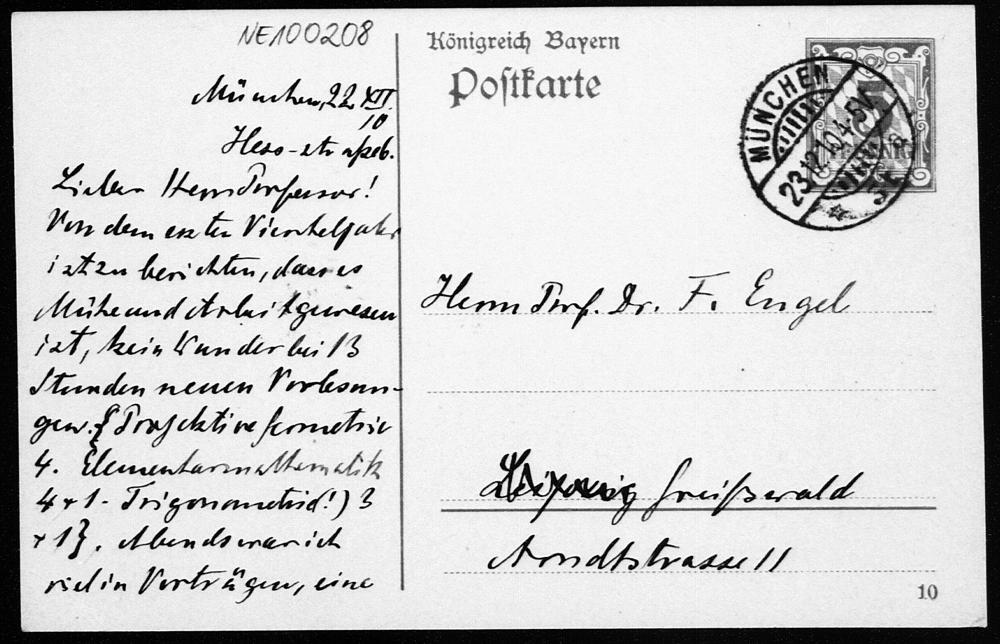 NE100208
München, 22. XII. 10
Hess-str
Lieber Herr Professor!
Von dem ersten Vierteljahr
ist zu berichten, dass es
Mühe und Arbeit gewesen
ist, kein Wunder bei 13
Stunden neuen Vorlesun-
gen. {Projektive Geometrie
4. Elementarmathematik
4+1 - Trigonometrie!) 3
+1}. Abends war ich
viel in Vorträgen, eine
Königreich Bayern
Postkarte
MÜNCHEN
23.12.10.4-5V.
5 PFENNIG
Herrn Prof. Dr. F. Engel
Leipzig Greifswald
Arndtstrasse 11
10